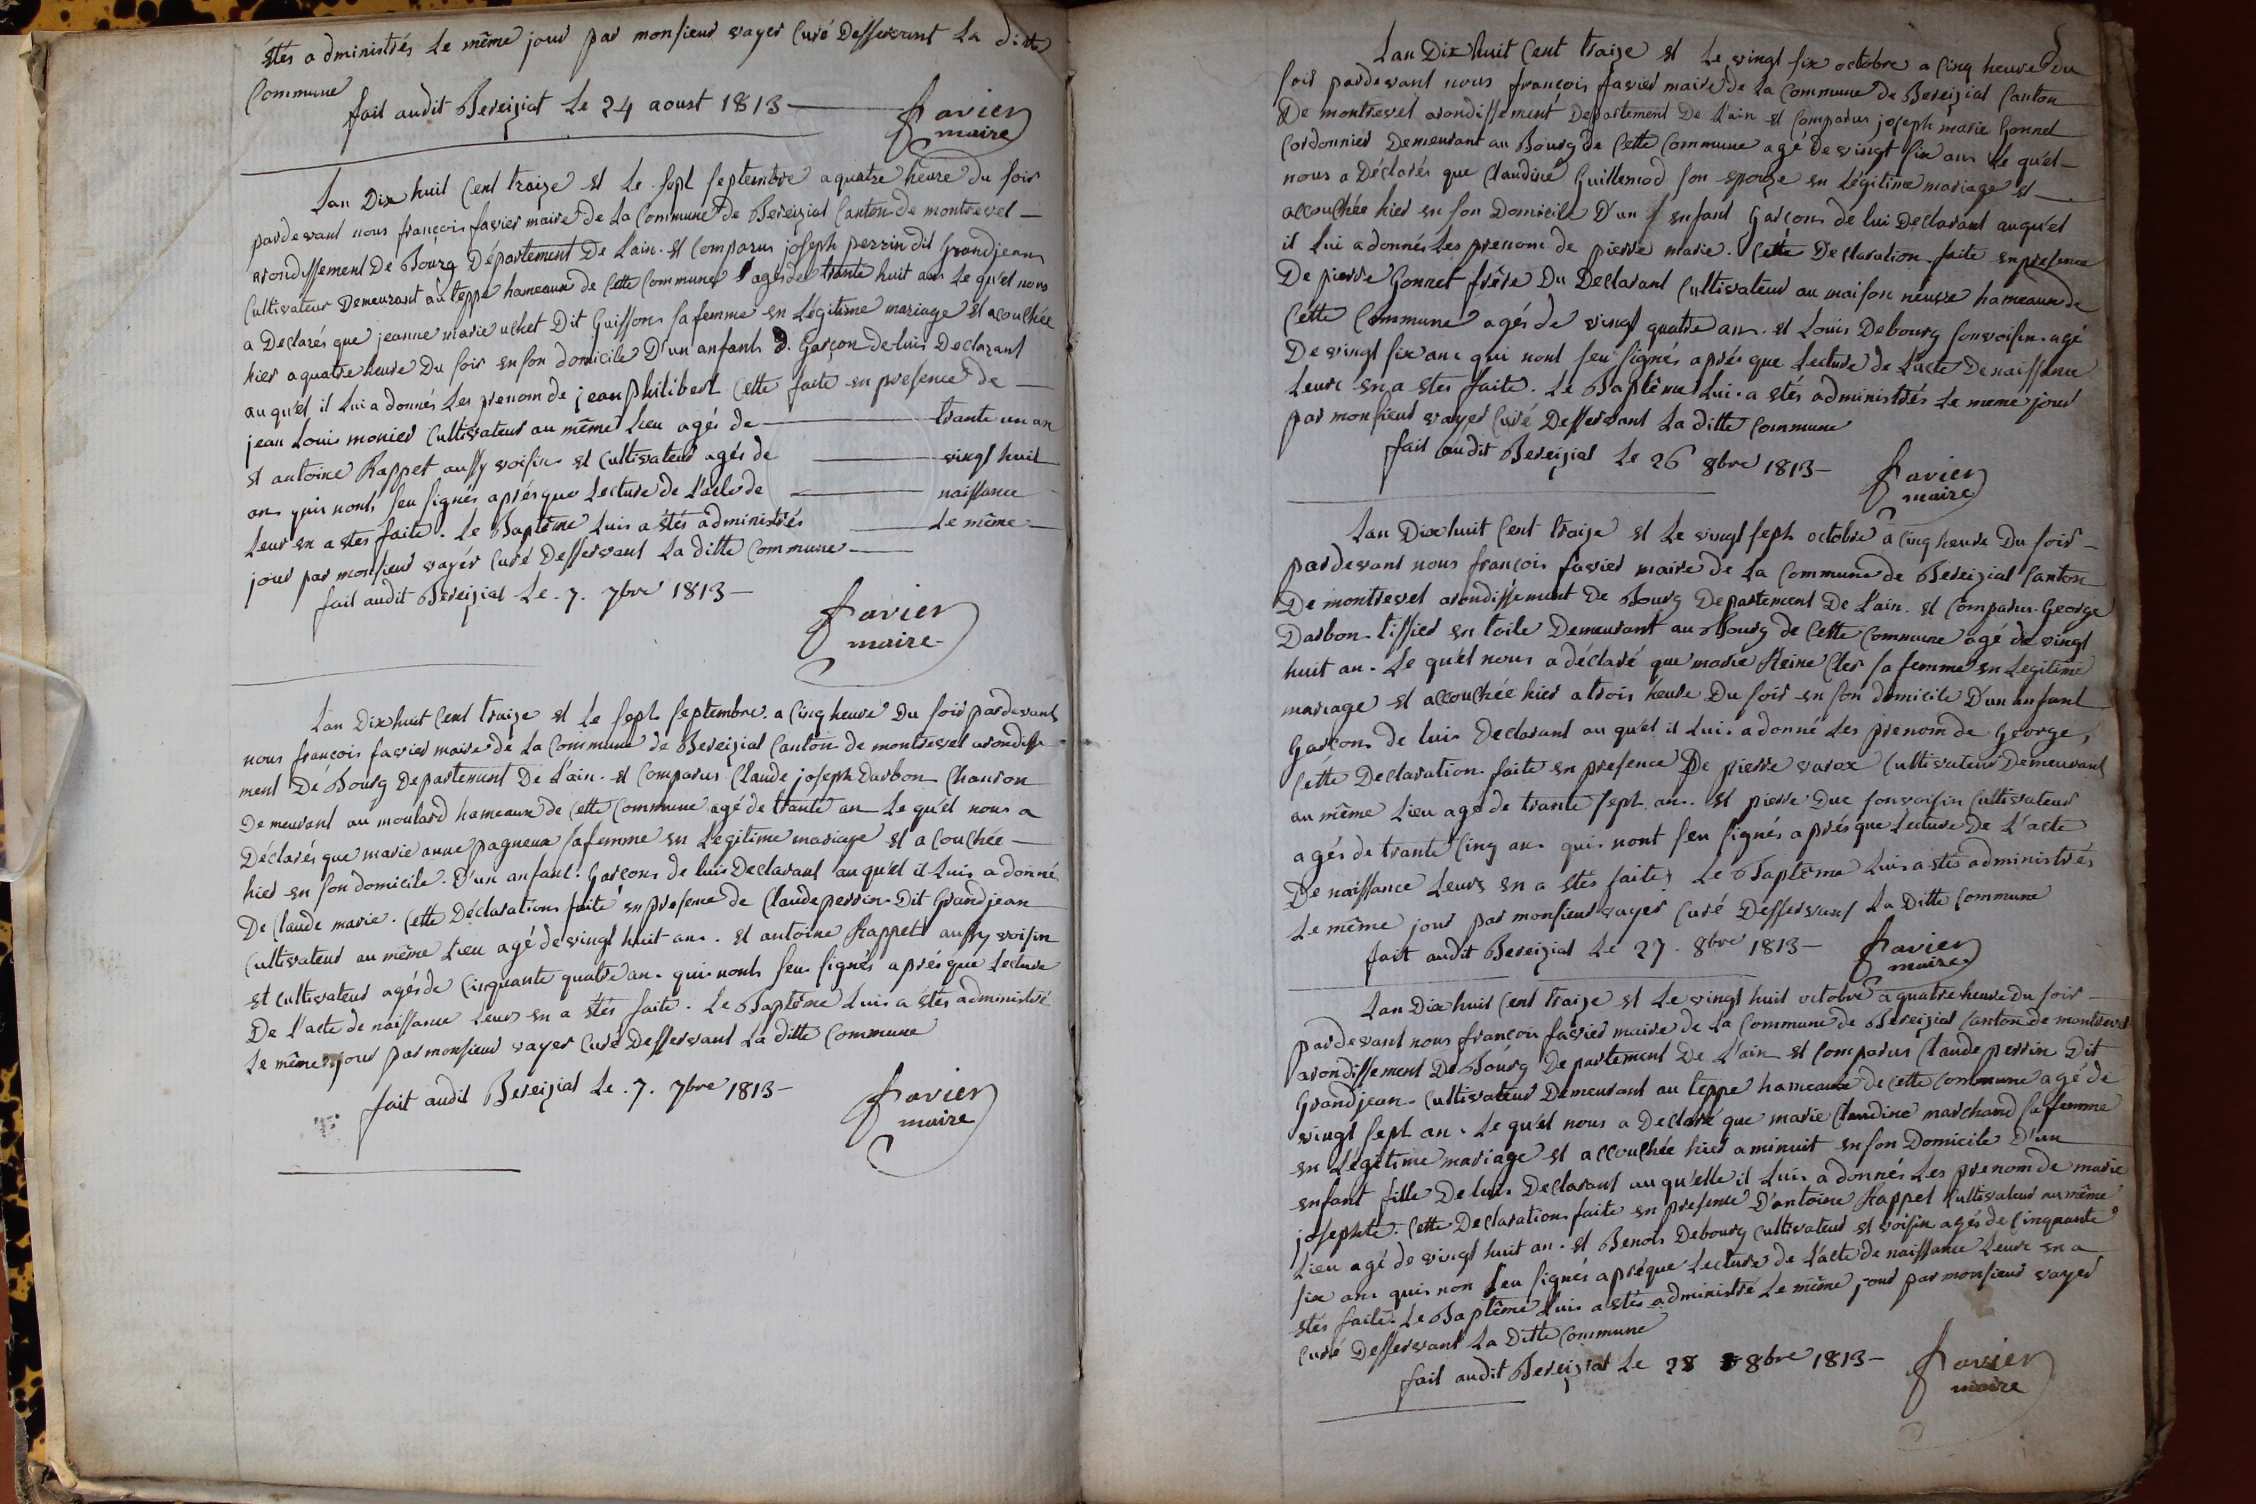 étés administrés Le même jour par monsieur vayer Curé Desservant La ditte
Commune
fait audit Bereiziat Le 24 aoust 1813 —
favier
maire
Lan Dix huit Cent traize et Le sept septembre a quatre heure du soir
pardevant nous françois favier maire de La Commune de Bereiziat Canton de montrevel —
arondissement De Bourg Département De Lain. et Comparus joseph perrin dit Grandjean
Cultivateur Demeurant au teppe hameaux de Cette Commune agés de trante huit ans Le qu'el nous
a Declarés que jeanne marie uchet Dit Guisson sa femme en Légitime mariage et acouchée
hier a quatre heure Du soir en son domicile D'un anfant Garçon de luis Declarant
auqu'el il Lui a donnés Les prenom de jean philibert Cette faite en presence de —
jean Louis monier Cultivateur au même Lieu agés de — trante un an
et antoine Rappet aussy voisin et Cultivateur agés de — vingt huit
ans quis nonts seu signés après que Lecture de L'acte de — naissance
Leur en a étés faite. Le Baptême Luis a étés administrés — Le même —
jour par monsieur vayer Curé Desservant La ditte Commune —
fait audit Bereiziat Le 7. 7bre 1813 —
favier
maire
Lan Dix huit Cent traize et Le sept septembre. a Cinq heure Du soir pardevant
nous françois favier maire de La Commune de Bereiziat Canton de montrevel arondisse
ment De Bourg Departement De Lain. et Comparus Claude joseph Darbon Charon
Demeurant au moulard hameaux de Cette Commune agé de trante an Le qu'el nous a
Déclarés que marie anne pagneux sa femme en Légitime mariage et acouchée —
hier en son domicile. D'un anfant. Garçons de luis Declarant auqu'el il Luis a donné
De Claude marie. Cette Déclaration faite en presence de Claude perrin Dit Grandjean
Cultivateur au même Lieu agé de vingt huit an. et antoine Rappet aussy voisin
et Cultivateur agés de Cinquante quatre an. quis nonts seu signés après que Lecture
De L'acte de naissance Leurs en a étés faite. Le Baptême Luis a étés administré
Le même jour par monsieur vayer Curé Desservant La ditte Commune
fait audit Bereiziat Le. 7. 7bre 1813 —
favier
maire
Lan Dix huit Cent traize et Le vingt six octobre a Cinq heure Du
soir pardevant nous françois favier maire de La Commune de Bereiziat Canton
De montrevel arondissement Departement De Lain et Comparus joseph marie Gonnet
Cordonnier Demeurant au Bourg de Cette Commune agé de vingt six ans Le qu'el —
nous a Déclarés que Claudine Guillemod son epouze en Légitime mariage et —
accouchée hier en son Domicile D'un enfant Garçons de lui Declarant auqu'el
il Lui a donnés Les prenom de pierre marie. Cette Declaration faite en presence
De pierre Gonnet frère Du Declarant Cultivateur au maison neuve hameaux de
Cette Commune agés de vingt quatre an. et Louis Debourg son voisin agé
De vingt six ans qui nont seu signés après que Lecture de L'acte De naissance
Leurs en a étés faite. Le Baptême Lui a étés administrés Le meme jour
par monsieur vayer Curé Desservant La ditte Commune
fait audit Bereiziat Le 26 8bre 1813 —
favier
maire
Lan Dix huit Cent traize et Le vingt sept octobre a Cinq heure Du soir —
pardevant nous françois favier maire de La Commune de Bereiziat Canton
De montrevel arondissement De Bourg Departement De Lain. et Comparus George
Darbon tissier en toile Demeurant au Bourg de Cette Commune agé de vingt
huit an. Le qu'el nous a déclaré que marie Reine Cler sa femme en Legitime
mariage et accouchée hier a trois heure Du soir en son domicile D'un enfant
Garçon de luis Declarant auqu'el il Luis a donné Les prenom de George,
Cette Declaration faite en presence De pierre varax Cultivateur Demeurant
au même Lieu agé de trante sept an. et pierre Duc son voisin Cultivateur
agés de trante Cinq ans quis nont seu signés après que Lecture De L'acte
De naissance Leurs en a étés faite. Le Baptême Luis a étés administrés
Le même jour par monsieur vayer Curé Desservant La Ditte Commune
fait audit Bereiziat Le 27. 8bre 1813 —
favier
maire
Lan Dix huit Cent traize et Le vingt huit octobre a quatre heure Du soir —
pardevant nous françois favier maire de La Commune de Bereiziat Canton de montrevel
arondissement De Bourg Departement De Lain et Comparus Claude perrin Dit
Grandjean Cultivateur Demeurant au teppe hameaux de Cette Commune agé de
vingt sept an. Le qu'el nous a Declaré que marie Claudine marchand sa femme
en Légitime mariage et accouchée hier a minuit en son Domicile D'un
enfant fille De luis Declarant auqu'elle il Luis a donnés Les prenom de marie
josephte. Cette Declaration faite en presence D'antoine Rappet Cultivateur au même
Lieu agé de vingt huit an. et Benoit Debourg Cultivateur et voisin agés de Cinquante
six ans quis non seu signés aprèque Lecture de L'acte de naissance Leurs en a
étés faite. Le Baptême Luis a étés administré Le même jour par monsieur vayer
Curé Desservant La Ditte Commune
fait audit Bereiziat Le 28 8bre 1813 —
favier
maire